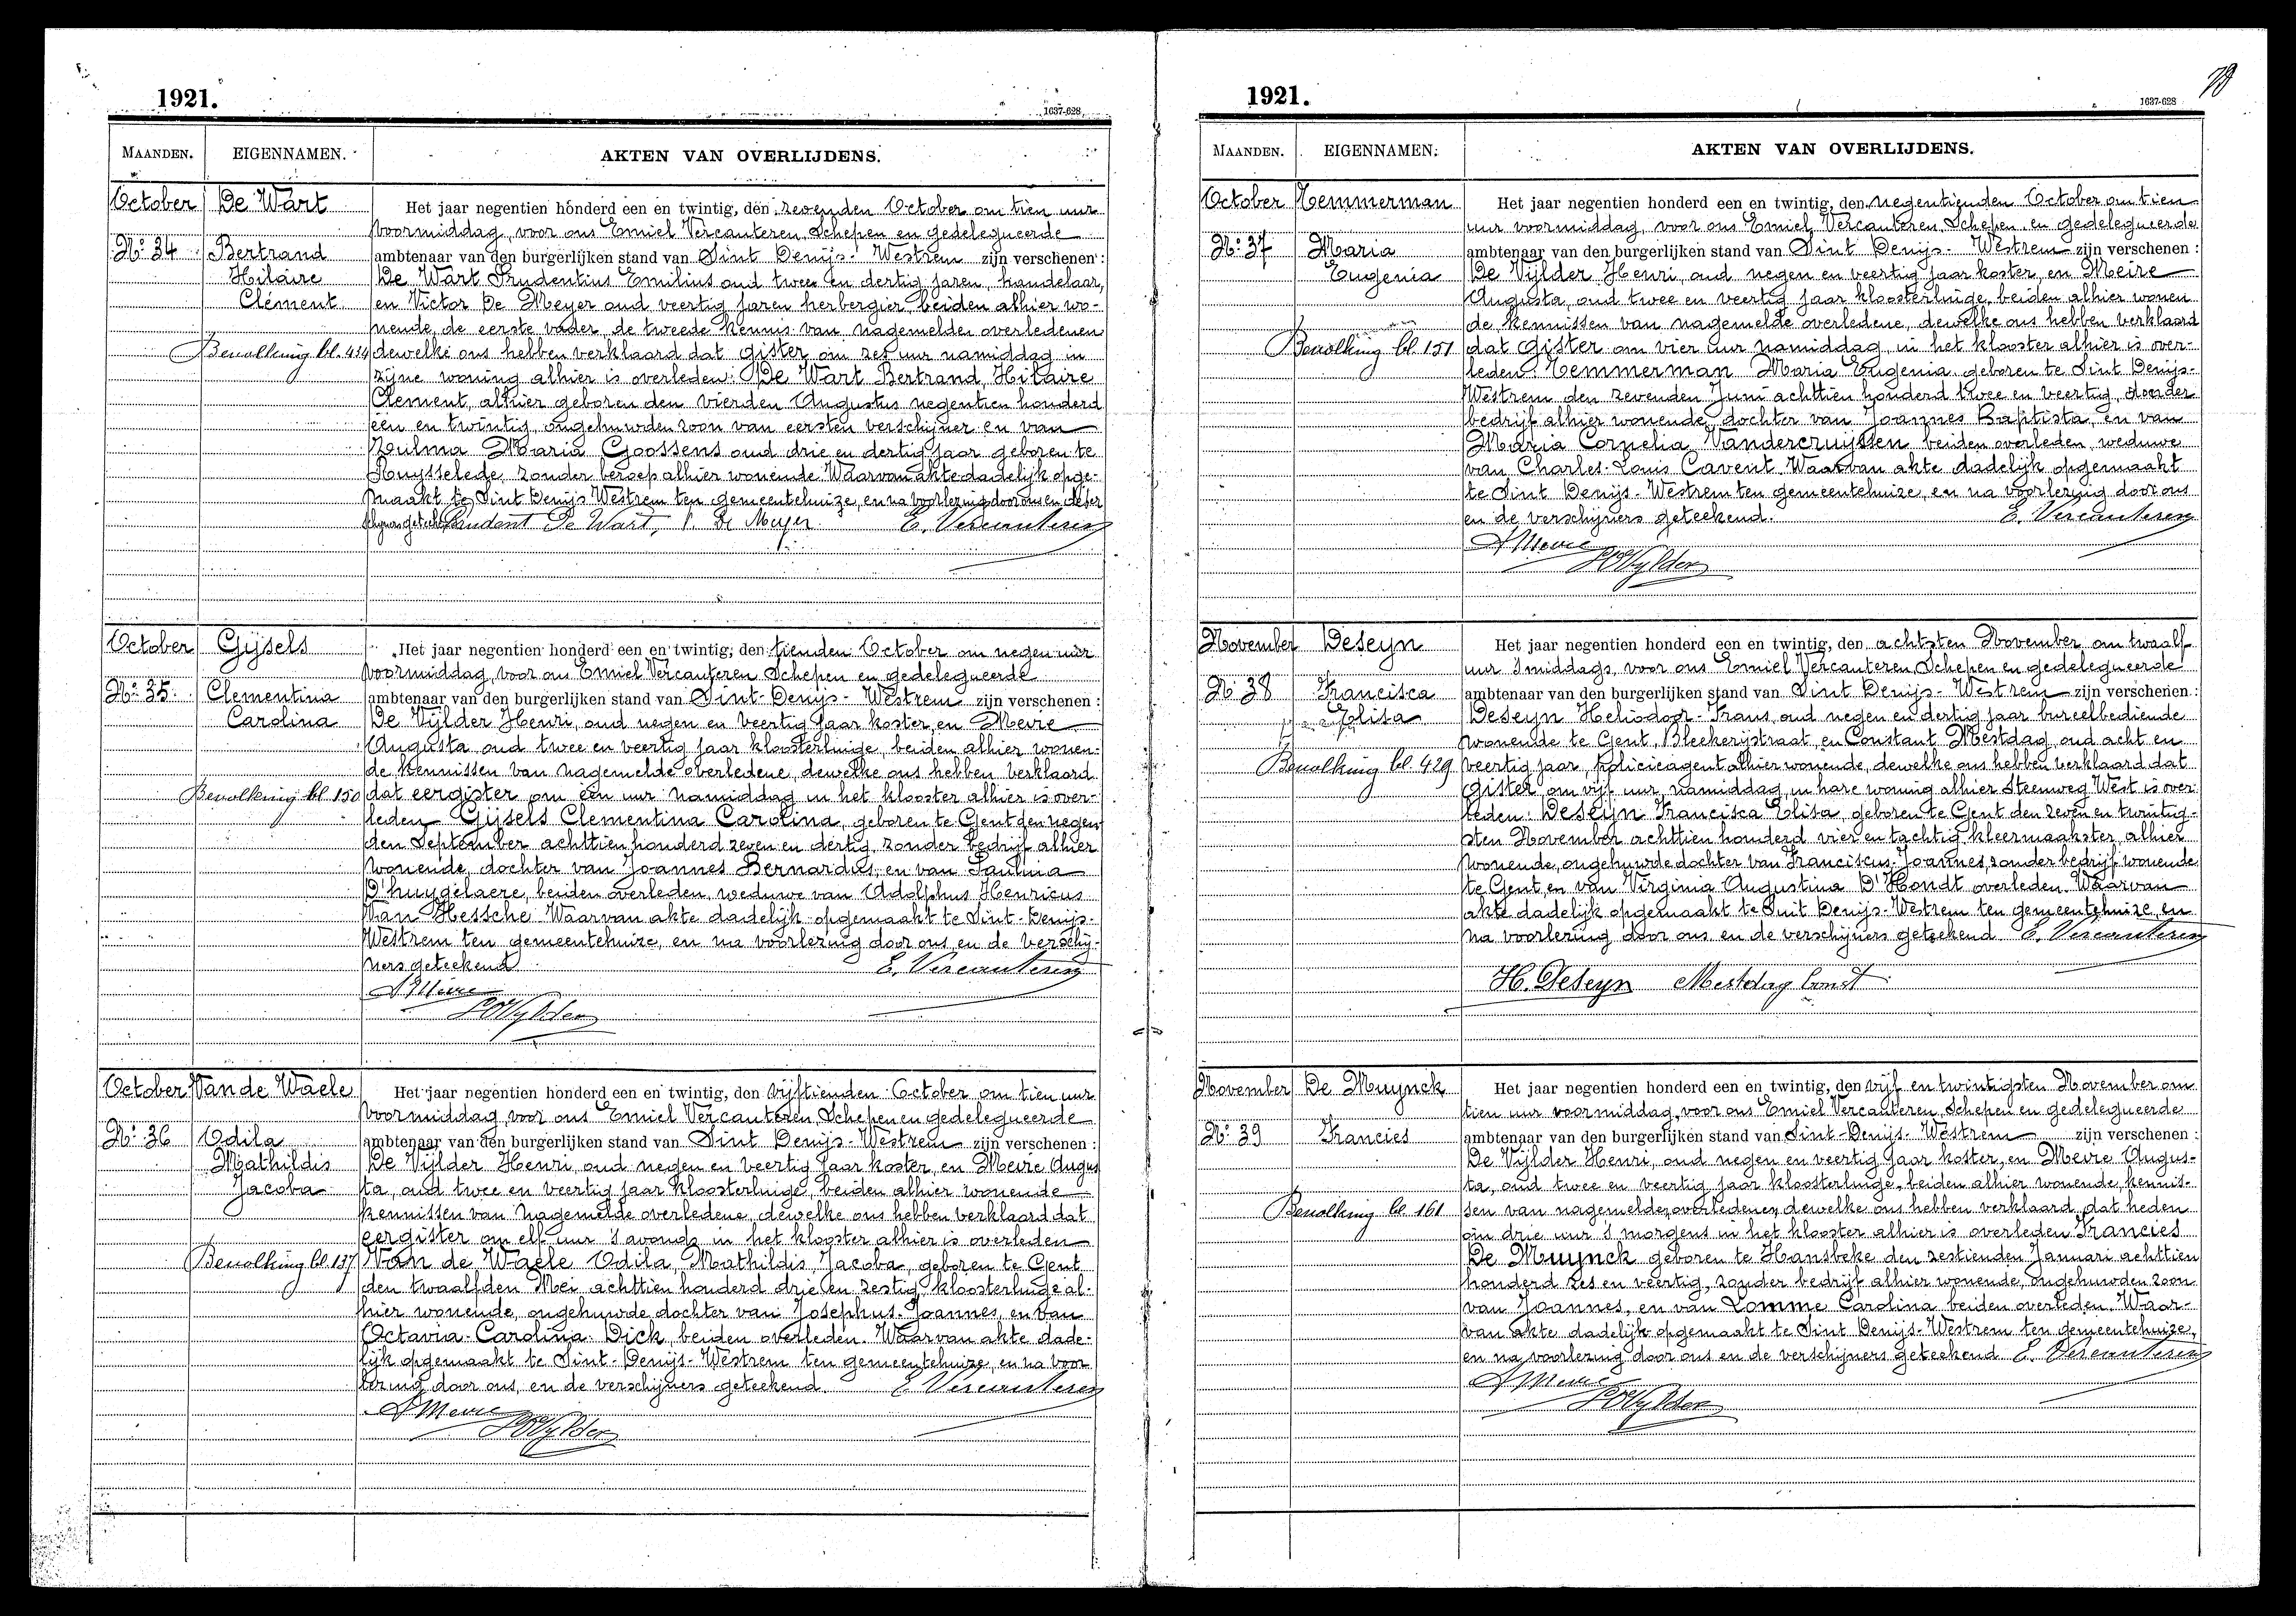 1921.
1637-628
MAANDEN.
EIGENNAMEN.
AKTEN VAN OVERLIJDENS.
October
De Wart
Het jaar negentien honderd een en twintig, den zevenden October om tien uur
voormiddag, voor ons Emiel Vercauteren Schepen en gedelegueerde
No. 34
Bertrand
ambtenaar van den burgerlijken stand van Sint Denijs-Westrem zijn verschenen :
Hilaire
De Wart Prudentius Emilius oud twee en dertig jaren, handelaar,
Clément
en Victor De Meyer oud veertig jaren herbergier, beiden alhier wo-
nende, de eerste vader, de tweede kennis van nagemelden overledenen
Bevolking bl. 434
dewelke ons hebben verklaard dat gister om zes uur namiddag in
zijne woning alhier is overleden: De Wart Bertrand, Hilaire
Clement, alhier geboren den vierden Augustus negentien honderd
een en twintig, ongehuwden zoon van eersten verschijner en van
Zulma Maria Goossens oud drie en dertig jaar geboren te
Ruysselede, zonder beroep alhier wonende. Waarvan akte dadelijk opge-
maakt te Sint Denijs Westrem ten gemeentehuize, en na voorlezing door ons en de ver
schijners geteekend Prudent De Wart, V. De Meyer E. Vercauteren
October
Gijsels
Het jaar negentien honderd een en twintig, den tienden October om negen uur
voormiddag, voor ons Emiel Vercauteren Schepen en gedelegueerde
No. 35
Clementina
ambtenaar van den burgerlijken stand van Sint-Denijs-Westrem zijn verschenen :
Carolina
De Vijlder Henri, oud negen en veertig jaar koster, en Meire
Augusta, oud twee en veertig jaar kloosterlinge, beiden alhier wonen-
de kennissen van nagemelde overledene, dewelke ons hebben verklaard
Bevolking bl 150
dat eergister om een uur namiddag in het klooster alhier is over-
leden Gijsels Clementina Carolina, geboren te Gent den negen
den September achttien honderd zeven en dertig, zonder bedrijf alhier
wonende, dochter van Joannes Bernardus, en van Paulina
D'huygelaere, beiden overleden, weduwe van Adolphus Henricus
Van Hessche Waarvan akte dadelijk opgemaakt te Sint-Denijs-
Westrem ten gemeentehuize, en na voorlezing door ons, en de verschij-
ners geteekend E. Vercauteren
A Meire
H De Vylder
October
Van de Waele
Het jaar negentien honderd een en twintig, den vijftienden October om tien uur
voormiddag, voor ons Emiel Vercauteren, Schepen en gedelegueerde
No. 36
Odila
ambtenaar van den burgerlijken stand van Sint Denijs-Westrem zijn verschenen :
Mathildis
De Vijlder Henri, oud negen en veertig jaar koster, en Meire Augus
Jacoba
ta, oud twee en veertig jaar kloosterlinge, beiden alhier wonende
kennissen van nagemelde overledene, dewelke ons hebben verklaard dat
eergister om elf uur 's avonds in het klooster alhier is overleden
Bevolking bl 137
Van de Waele Odila, Mathildis, Jacoba, geboren te Gent
den twaalfden Mei achttien honderd drie en zestig, kloosterlinge al-
hier wonende, ongehuwde dochter van Josephus-Joannes, en van
Octavia-Carolina-Dick, beiden overleden. Waarvan akte dade-
lijk opgemaakt te Sint-Denijs-Westrem ten gemeentehuize, en na voor
lezing door ons, en de verschijners geteekend. E. Vercauteren
A Meire
H De Vylder
78
1921.
1637-628
MAANDEN.
EIGENNAMEN.
AKTEN VAN OVERLIJDENS.
October
Temmerman
Het jaar negentien honderd een en twintig, den negentienden October om tien
uur voormiddag, voor ons Emiel Vercauteren Schepen en gedelegueerde
No. 37
Maria
ambtenaar van den burgerlijken stand van Sint Denijs-Westrem zijn verschenen :
Eugenia
De Vijlder Henri, oud negen en veertig jaar koster, en Meire
Augusta, oud twee en veertig jaar kloosterlinge, beiden alhier wonen
de kennissen van nagemelde overledene, dewelke ons hebben verklaard
Bevolking bl. 151
dat gister om vier uur namiddag, in het klooster alhier is over-
leden: Temmerman Maria Eugenia geboren te Sint Denijs-
Westrem den zevenden Juni achttien honderd twee en veertig, zonder
bedrijf alhier wonende, dochter van Joannes Baptista, en van
Maria Cornelia Vandercruyssen beiden overleden, weduwe
van Charles-Louis Cavent. Waarvan akte dadelijk opgemaakt
te Sint Denijs-Westrem ten gemeentehuize, en na voorlezing door ons
en de verschijners geteekend. E. Vercauteren
A Meire
H De Vylder
November
Deseyn
Het jaar negentien honderd een en twintig, den achtsten November om twaalf
uur 's middags, voor ons Emiel Vercauteren Schepen en gedelegueerde
No. 38
Francisca
ambtenaar van den burgerlijken stand van Sint Denijs-Westrem zijn verschenen :
Elisa
Deseyn Heliodoor-Frans, oud negen en dertig jaar bureelbediende
wonende te Gent, Bleekerijstraat, en Constant Mestdag, oud acht en
Bevolking bl. 429
veertig jaar, policieagent alhier wonende, dewelke ons hebben verklaard dat
gister, om vijf uur, namiddag, in hare woning alhier Steenweg West is over
leden: Deseyn Francisca Elisa, geboren te Gent den zeven en twintig-
sten November achttien honderd vier en tachtig, kleermaakster, alhier
wonende, ongehuwde dochter van Franciscus-Joannes, zonder bedrijf wonende
te Gent, en van Virginia Augustina D'Hondt overleden. Waarvan
akte dadelijk opgemaakt te Sint Denijs-Westrem ten gemeentehuize, en
na voorlezing door ons en de verschijners geteekend E. Vercauteren
H. Deseyn Mestdag Const
November
De Muynck
Het jaar negentien honderd een en twintig, den vijf en twintigsten November om
tien uur voormiddag, voor ons Emiel Vercauteren, Schepen en gedelegueerde
No. 39
Francies
ambtenaar van den burgerlijken stand van Sint-Denijs-Westrem zijn verschenen :
De Vijlder Henri, oud negen en veertig jaar koster, en Meire Augus-
ta, oud twee en veertig jaar kloosterlinge, beiden alhier wonende, kennis-
Bevolking bl. 161
sen van nagemelden overledenen, dewelke ons hebben verklaard, dat heden
om drie uur 's morgens in het klooster alhier is overleden Francies
De Muynck geboren te Hansbeke den zestienden Januari achttien
honderd zes en veertig, zonder bedrijf alhier wonende, ongehuwden zoon
van Joannes, en van Lomme Carolina beiden overleden. Waar-
van akte dadelijk opgemaakt te Sint Denijs-Westrem ten gemeentehuize,
en na voorlezing door ons en de verschijners geteekend E. Vercauteren
A Meire
H De Vylder